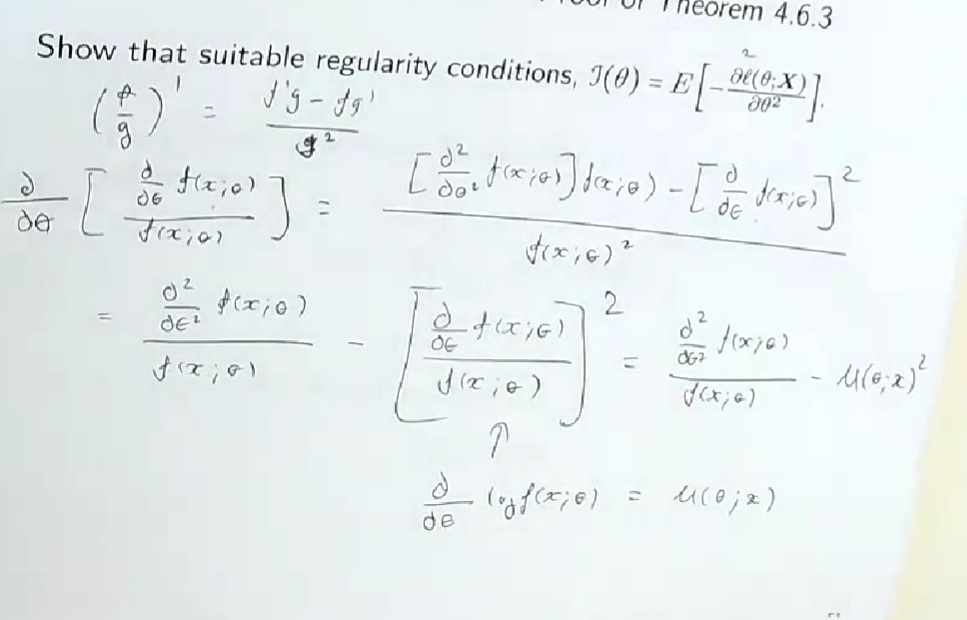 Theorem 4.6.3
Show that suitable regularity conditions, ℐ(θ) = E[-∂²ℓ(θ;X)/∂θ²].
(f/g)' = (f'g - fg')/g²
∂/∂θ [ (∂/∂θ f(x;θ)) / f(x;θ) ] = ( [∂²/∂θ² f(x;θ)] f(x;θ) - [∂/∂θ f(x;θ)]² ) / f(x;θ)²
= (∂²/∂θ² f(x;θ)) / f(x;θ) - [ (∂/∂θ f(x;θ)) / f(x;θ) ]² = (∂²/∂θ² f(x;θ)) / f(x;θ) - u(θ;x)²
↑
∂/∂θ log f(x;θ) = u(θ;x)